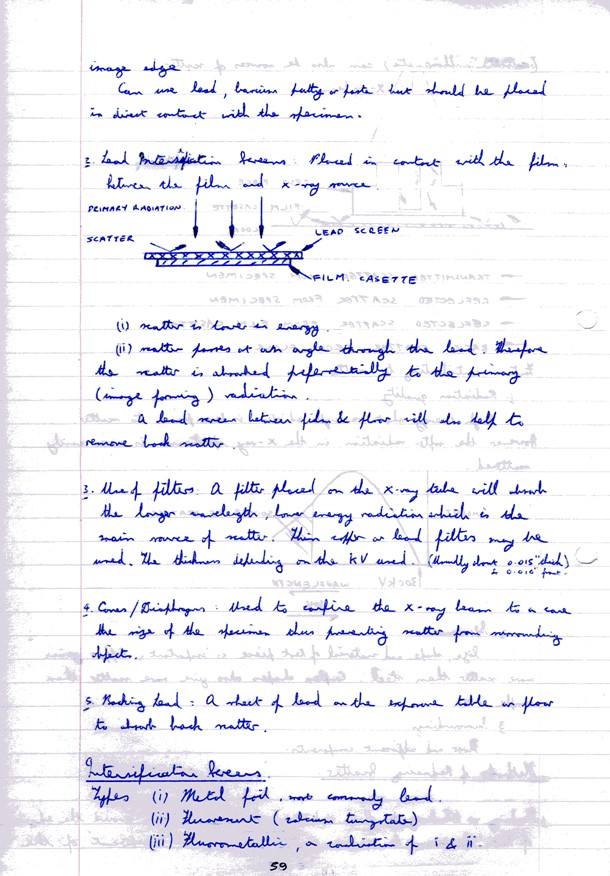 image edge
Can use lead, barium putty or paste but should be placed
in direct contact with the specimen.
2. Lead Intensification Screens: Placed in contact with the film,
between the film and x-ray source.
PRIMARY RADIATION.
SCATTER
LEAD SCREEN
FILM. CASETTE
(i) scatter is lower in energy.
(ii) scatter passes at an angle through the lead. Therefore
the scatter is absorbed preferentially to the primary
(image forming) radiation.
A lead screen between film & floor will also help to
remove back scatter.
3. Use of filters: A filter placed on the x-ray tube will absorb
the longer wavelength, lower energy radiation which is the
main source of scatter. Thin copper or lead filters may be
used. The thickness depending on the KV used. (Usually about 0.015" thick)
0.010"
4. Cones/Diaphragms: Used to confine the x-ray beam to a cone
the size of the specimen thus preventing scatter from surrounding
objects.
5. Backing Lead: A sheet of lead on the exposure table or floor
to absorb back scatter.
Intensification Screens.
Types (i) Metal foil, most commonly lead.
(ii) Fluorescent (calcium tungstate)
(iii) Fluorometallic, a combination of i & ii.
59